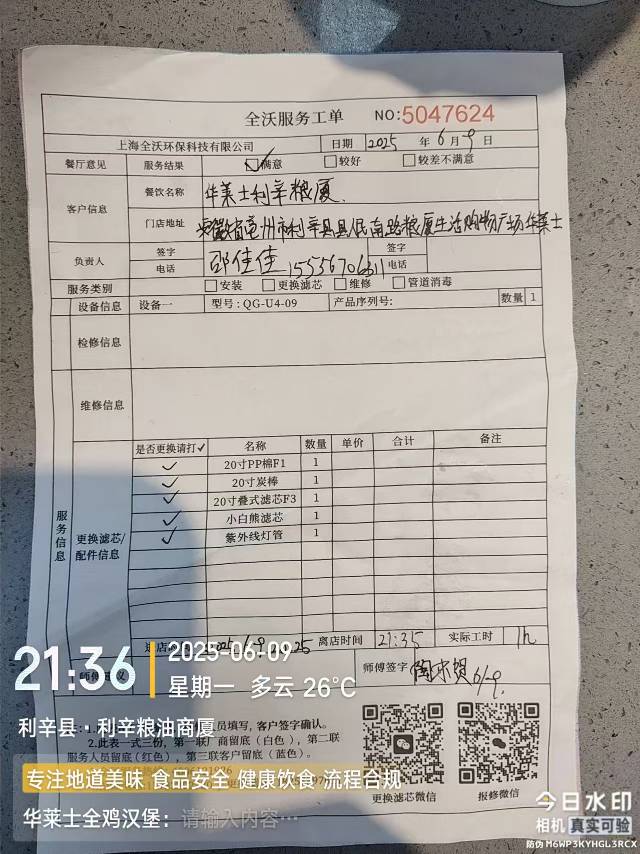 全沃服务工单 NO:5047624
上海全沃环保科技有限公司 日期 2025 年 6 月 9 日
餐厅意见 服务结果 满意 较好 较差不满意
客户信息 餐饮名称 华莱士利辛粮厦
门店地址 安徽省亳州市利辛县人民南路粮厦生活购物广场华莱士
负责人 签字 邵佳佳 签字
电话 电话
服务类别 安装 更换滤芯 维修 管道消毒
设备信息 设备一 型号:QG-U4-09 产品序列号: 数量 1
检修信息
维修信息
服务信息
更换滤芯/配件信息
是否更换请打✓ 名称 数量 单价 合计 备注
✓ 20寸PP棉F1 1
✓ 20寸炭棒 1
✓ 20寸叠式滤芯F3 1
✓ 小白熊滤芯 1
✓ 紫外线灯管 1
离店时间 21:35 实际工时 1h
师傅签字 6/-9.
21:36
2025-06-09
星期一 多云 26℃
利辛县·利辛粮油商厦
填写,客户签字确认。
2.此表一式三份,第一联厂商留底(白色),第二联
服务人员留底(红色),第三联客户留底(蓝色)。
专注地道美味 食品安全 健康饮食 流程合规
华莱士全鸡汉堡:请输入内容…
更换滤芯微信 报修微信
今日水印
相机 真实可验
防伪 M6WP3KYHGL3RCX